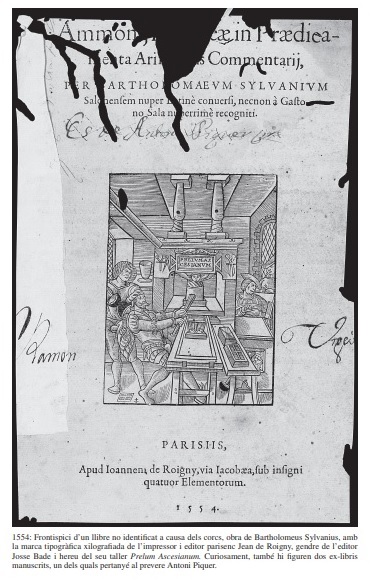 Ammon in Prædica-
menta Commentarij,
PER BARTHOLOMAEVM SYLVANIVM
Salonensem nuper Latinè conversi, necnon à Gasto-
no Sala nuperrimè recogniti.
Es de Antoni Piquer
PRELVM AS
CESIANVM
Ramon
PARISIIS,
Apud Ioannem de Roigny, via Iacobæa, sub insigni
quatuor Elementorum.
1554.
1554: Frontispici d'un llibre no identificat a causa dels corcs, obra de Bartholomeus Sylvanius, amb
la marca tipogràfica xilografiada de l'impressor i editor parisenc Jean de Roigny, gendre de l'editor
Josse Bade i hereu del seu taller Prelum Ascesianum. Curiosament, també hi figuren dos ex-libris
manuscrits, un dels quals pertanyé al prevere Antoni Piquer.